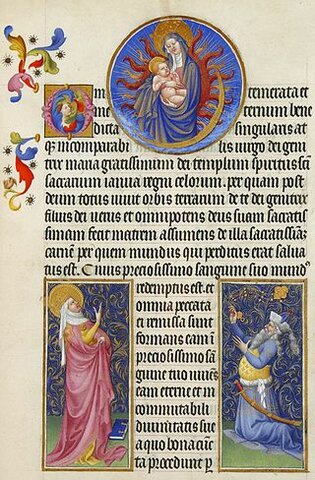 temerata et
ternum bene
dicta singularis at
incomparabilis uirgo dei geni
trix maria gratissimum dei templum spiritus sancti
sacrarium ianua regni celorum. per quam post
deum totus uiuit orbis terrarum de te dei genitrix
filius dei uerus et omnipotens deus suam sacratis
simam fecit matrem assumens de illa
carnem per quem mundus qui perditus erat salua
tus est. Cuius preciosissimo sanguine suo
redemptus est. et
omnia peccata
ei remissa sunt
precioso sa
guine suo
eam eterne et in
commutabili
diuinitatis sue
a quo bona
ta procedunt